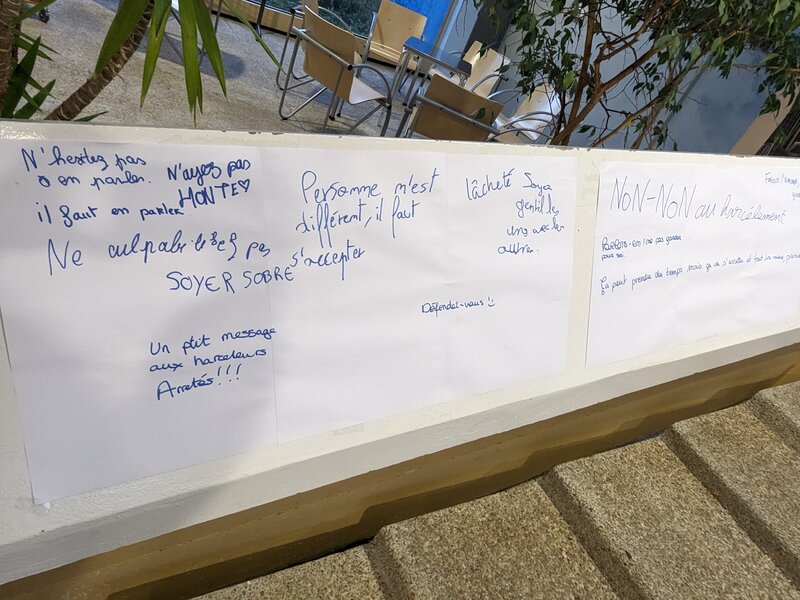 N'hesitez pas
a en parler.
N'ayez pas
HONTE♡
il faut en parler.
Ne culpabilisez pas
SOYER SOBRE
Un ptit message
aux harceleurs
Arretés!!!
Personne n'est
différent, il faut
s'accepter
lâcheté Soyez
gentil les
uns avec les
autres.
Défendez-vous
NON-NON au harcèlement
Parlons-en / ne pas garder
pour soi
ça peut prendre du temps mais ça va s'arrêter et tout ira mieux